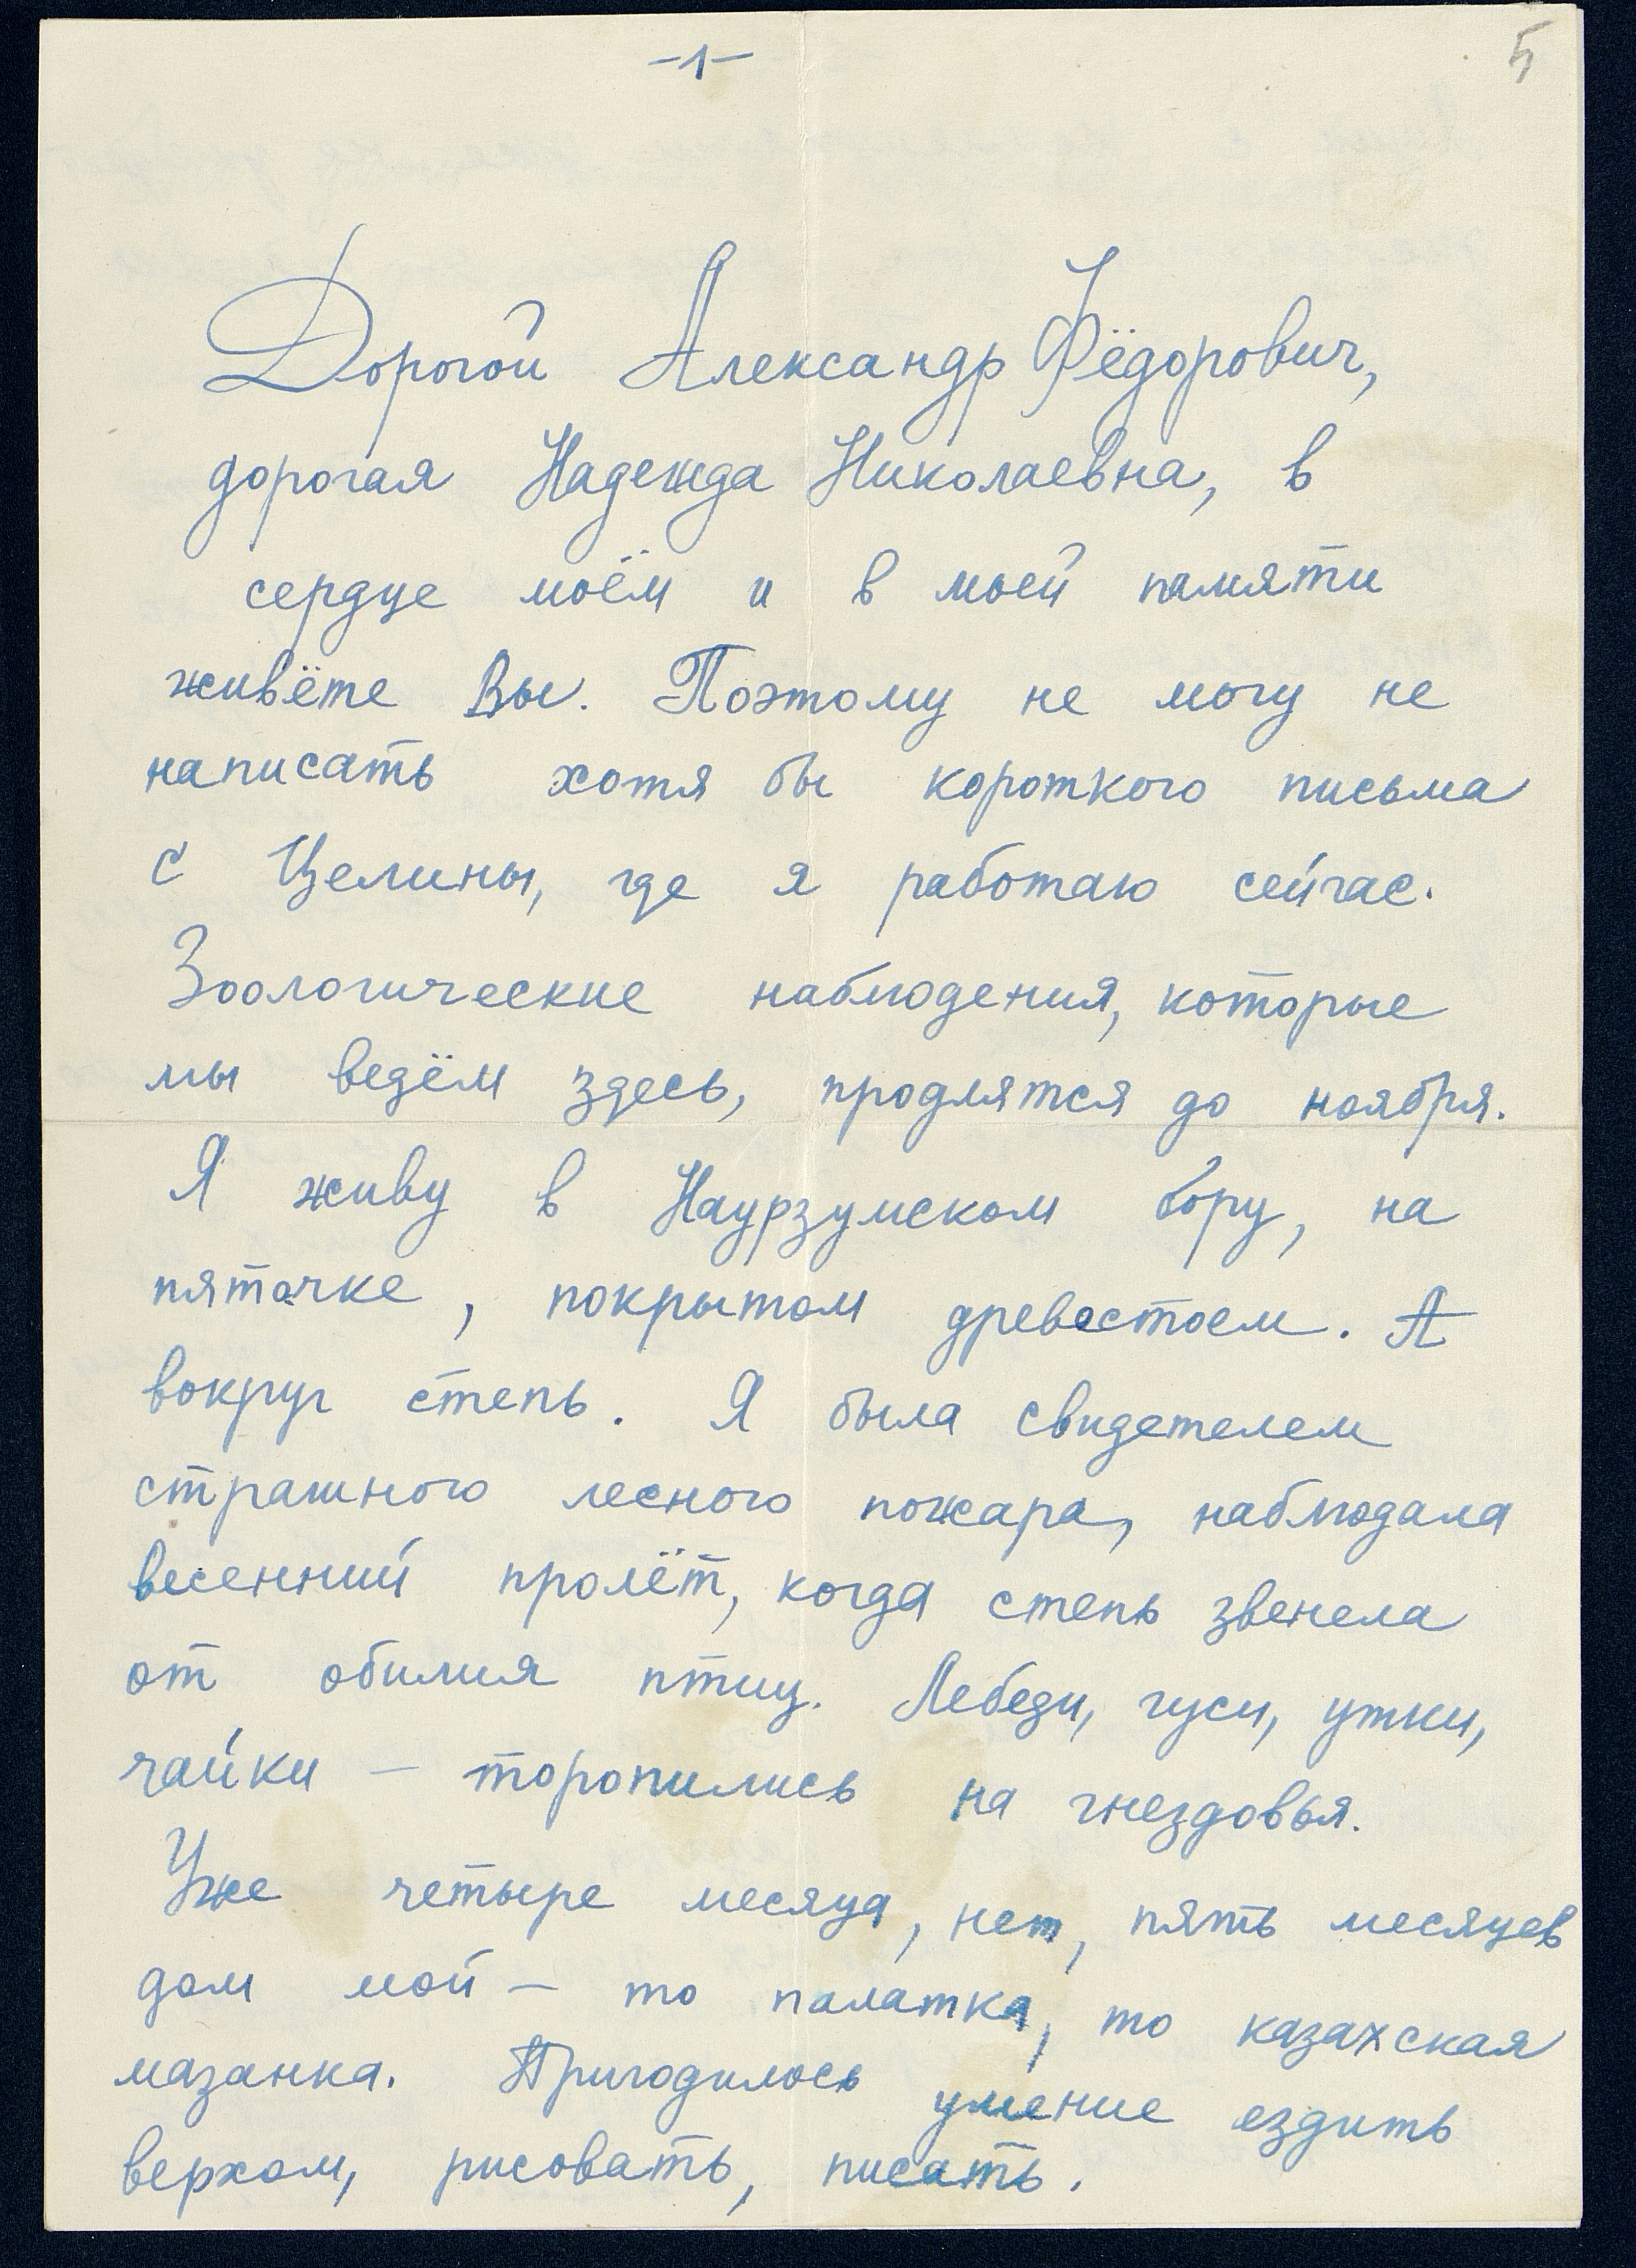 -1-
5
Дорогой Александр Фёдорович,
дорогая Надежда Николаевна, в
сердце моём и в моей памяти
живёте Вы. Поэтому не могу не
написать хотя бы короткого письма
с Целины, где я работаю сейчас.
Зоологические наблюдения, которые
мы ведём здесь, продлятся до ноября.
Я живу в Наурзумском бору, на
пяточке, покрытом древостоем. А
вокруг степь. Я была свидетелем
страшного лесного пожара, наблюдала
весенний пролёт, когда степь звенела
от обилия птиц. Лебеди, гуси, утки,
чайки — торопились на гнездовья.
Уже четыре месяца, нет, пять месяцев
дом мой — то палатка, то казахская
мазанка. Пригодилось умение ездить
верхом, рисовать, писать.